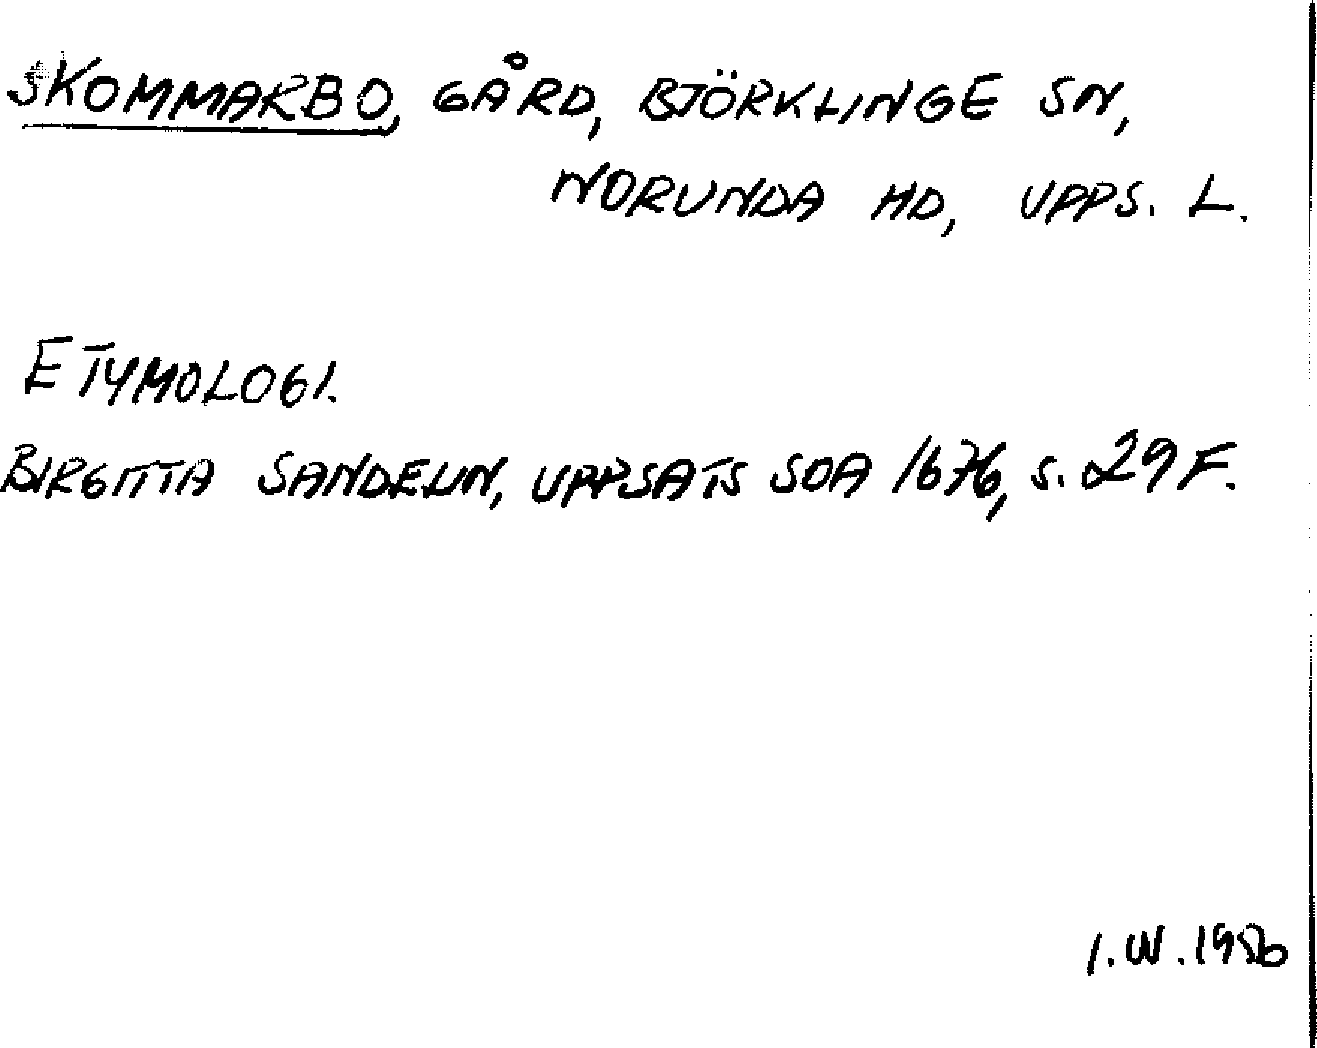 SKOMMARBO, GÅRD, BJÖRKLINGE SN,
NORUNDA HD, UPPS. L.
ETYMOLOGI.
BIRGITTA SANDELIN, UPPSATS SOA 1676, S. 29 F.